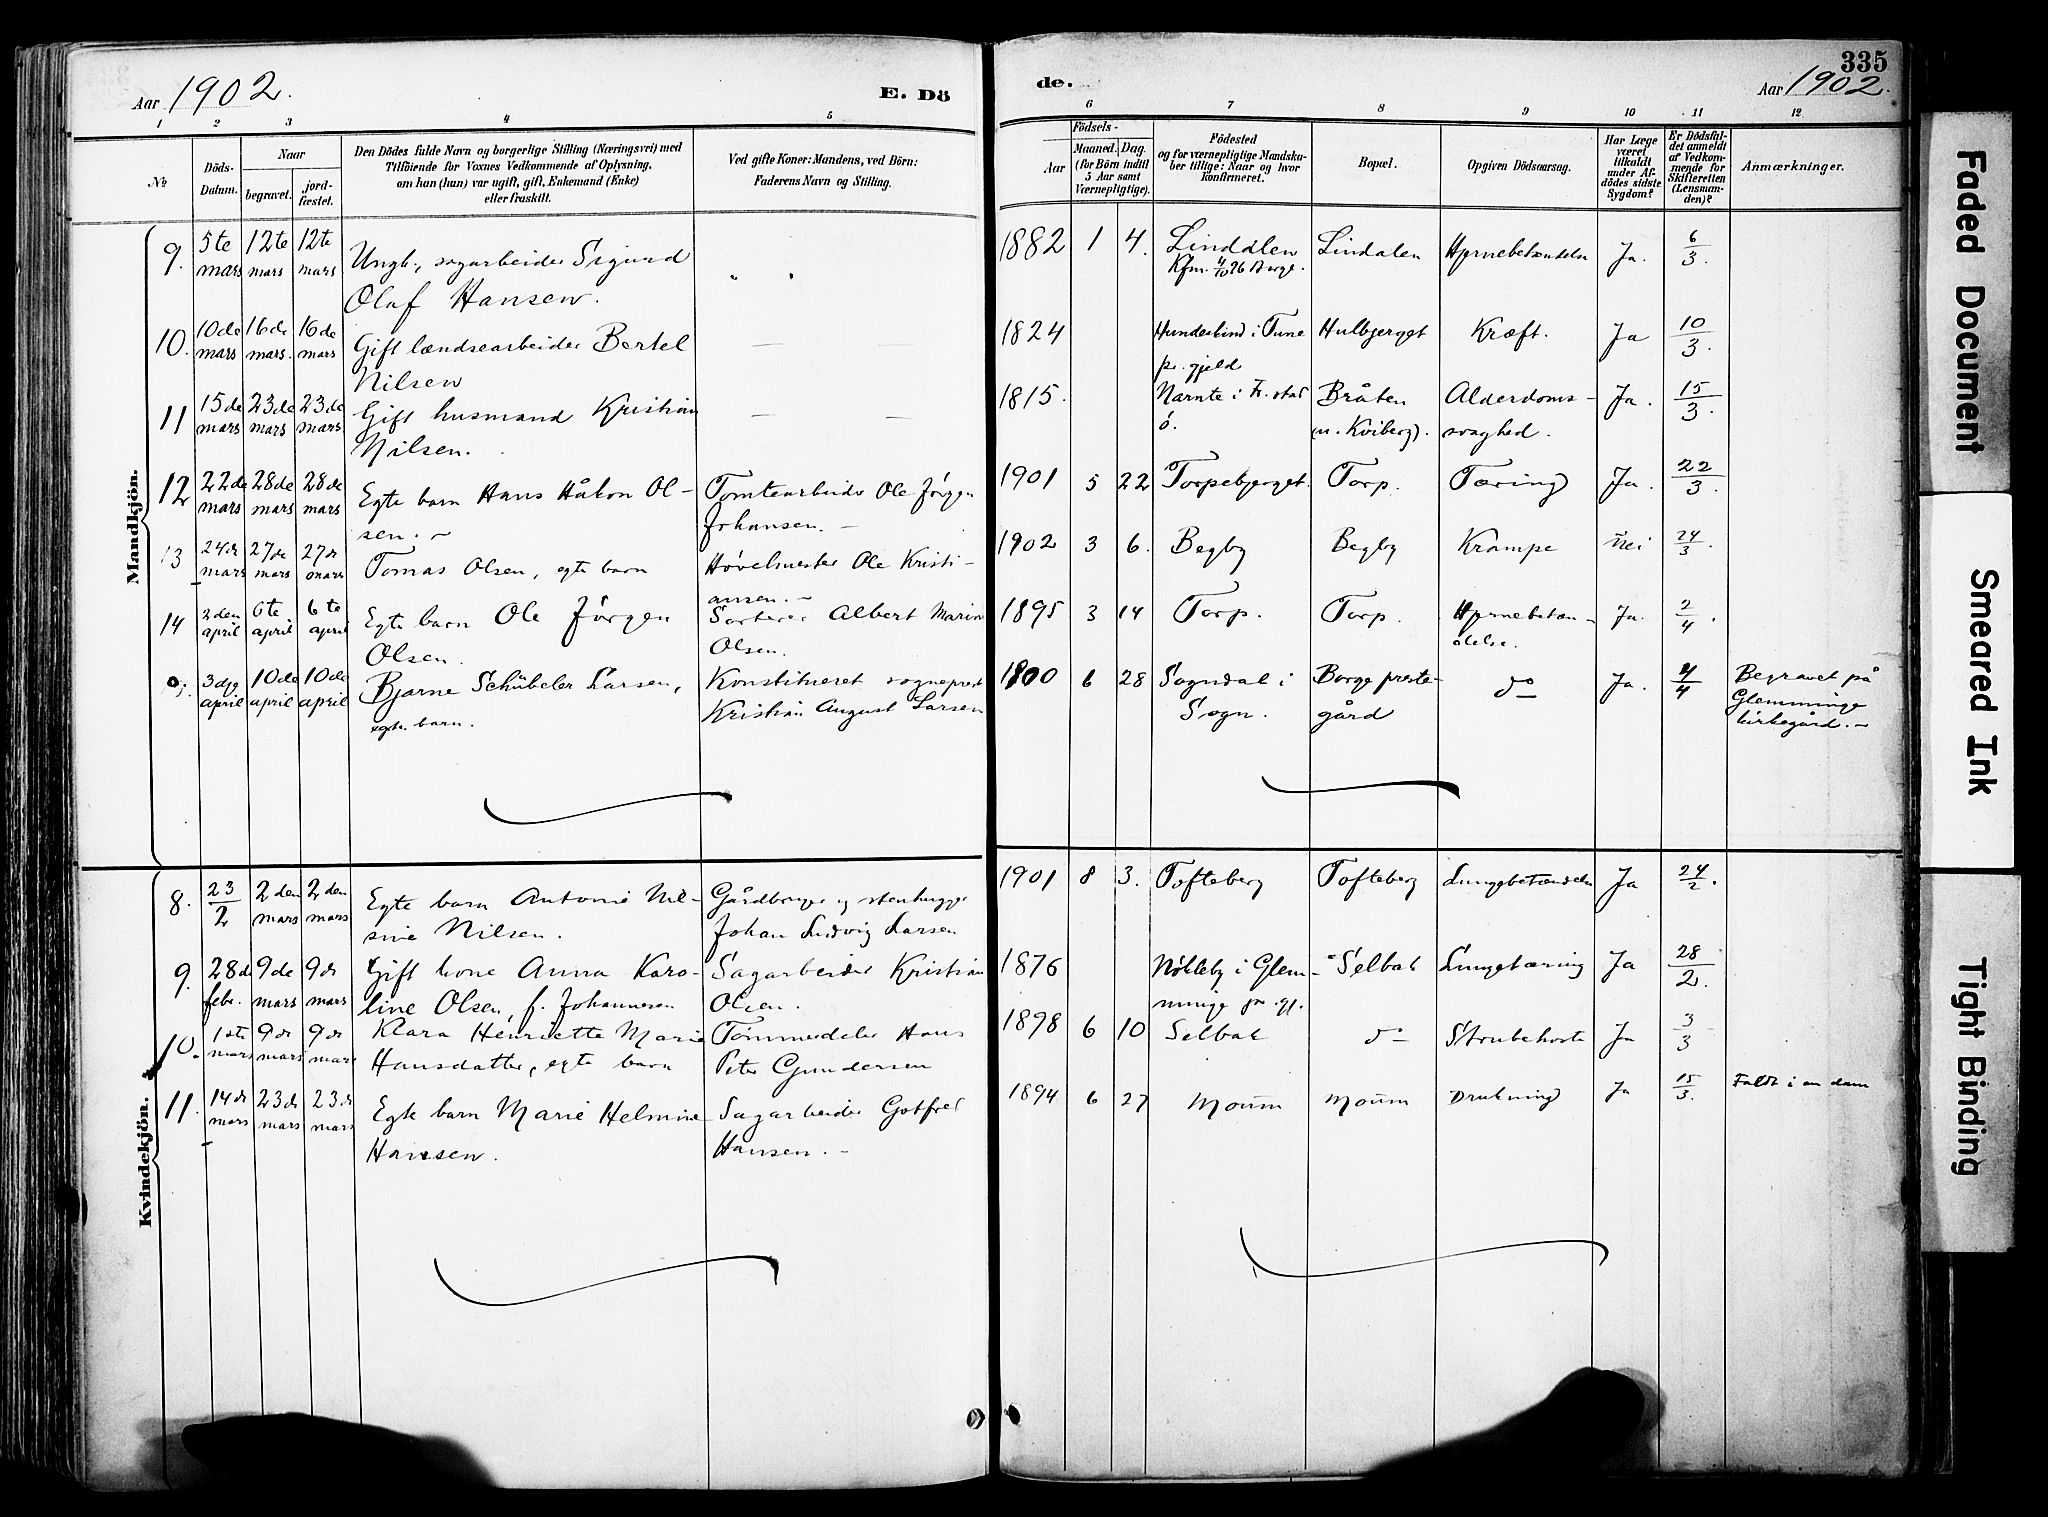 Aar 1902.
E. Dö
de.
335
Aar 1902.
1 2 3 4 5 6 7 8 9 10 11 12
№
Döds-
Datum.
Naar
begravet.
jord-
fæstet.
Den Dödes fulde Navn og borgerlige Stilling (Næringsvei) med
Tilföiende for Voxnes Vedkommende af Oplysning,
om han (hun) var ugift, gift, Enkemand (Enke)
eller fraskilt.
Ved gifte Koner: Mandens, ved Börn:
Faderens Navn og Stilling.
Födsels-
Aar
Maaned. Dag.
(for Börn indtil
5 Aar samt
Værnepligtige).
Födested
og for værnepligtige Mandska-
ber tillige: Naar og hvor
konfirmeret.
Bopæl.
Opgiven Dödsaarsag.
Har Læge
været
tilkaldt
under Af-
dödes sidste
Sygdom?
Er Dödsfal-
det anmeldt
af Vedkom-
mende for
Skifteretten
(Lensman-
den)?
Anmærkninger.
Mandkjön.
9. 5te mars 12te mars 12te mars Ungk., sagarbeider Sigurd
Olaf Hansen.
1882 1 4. Linddlen Lindalen Hjernebetændelse Ja. 6/3.
Kfm. 4/10 96 Borge.
10. 10de mars 16de mars. 16de mars Gift lændsearbeider Bertel
Nilsen
1824 Hunderlund i Tune Hulbjerget Kræft. Ja 10/3.
pr. gjeld
11 15de mars 23de mars 23de mars. Gift husmand Kristian
Nilsen.
1815. Narnte i Fr.stad Bråten Alderdoms- Ja. 15/3.
ó. (u. Kviberg). svaghed.
12 22de mars 28de mars 28de mars Egte barn Hans Håkon Ol-
sen.
Tomtearbeider Ole Jörgen
Johansen.
1901 5 22 Torpebjerget. Torp. Tæring Ja. 22/3.
13 24de mars 27de mars 27de mars Tomas Olsen, egte barn
Hövelmester Ole Kristi-
ansen.
1902 3 6. Begby Begby Krampe nei 24/3.
14 2den april 6te april 6te april Egte barn Ole Jörgen
Olsen.
Sorterer Albert Marin
Olsen.
1895 3 14 Torp. Torp. Hjernebetæn- Ja. 2/4.
delse.
3dje april 10de april 10de april Bjarne Schübeler Larsen,
egte barn.
Konstitueret sogneprest
Kristian August Larsen
1900 6 28 Sogndal i Borge preste- do Ja. 4/4 Begravet på
Sogn. gård Glemminge
kirkegård.
Kvindekjön.
8. 23/2 2den mars 2den mars Egte barn Antonie Nil-
sine Nilsen.
Gårdbruger og stenhugger
Johan Ludvig Larsen
1901 8 3. Tofteberg Tofteberg Lungebetændelse Ja 24/2.
9. 28de febr. 9de mars 9de mars Gift kone Anna Karo-
line Olsen, f. Johannesen
Sagarbeider Kristian
Olsen.
1876 Nölleby i Glem- Selbak Lungetæring Ja 28/2.
minge pr. gj.
10. 1ste mars 9de mars 9de mars Klara Henriette Marie
Hansdatter, egte barn
Tömmerdeler Hans
Peter Gundersen
1898 6 10 Selbak do Strubehoste Ja 3/3
11. 14de mars 23de mars 23de mars Egte barn Marie Helmine
Hansen.
Sagarbeider Gotfred
Hansen.
1894 6 27 Moum Moum Drukning Ja 15/3. Faldt i en dam
Faded Document
Smeared Ink
Tight Binding